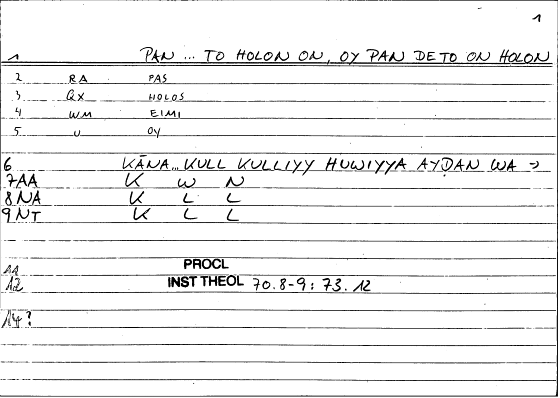 1
1 PAN ... TO HOLON ON, OY PAN DE TO ON HOLON
2 RA PAS
3 QX HOLOS
4 WM EIMI
5 U OY
6 KĀNA... KULL KULLIYY HUWIYYA AYḌAN WA →
7AA K W N
8NA K L L
9NT K L L
11 PROCL
12 INST THEOL 70.8-9: 73.12
14?